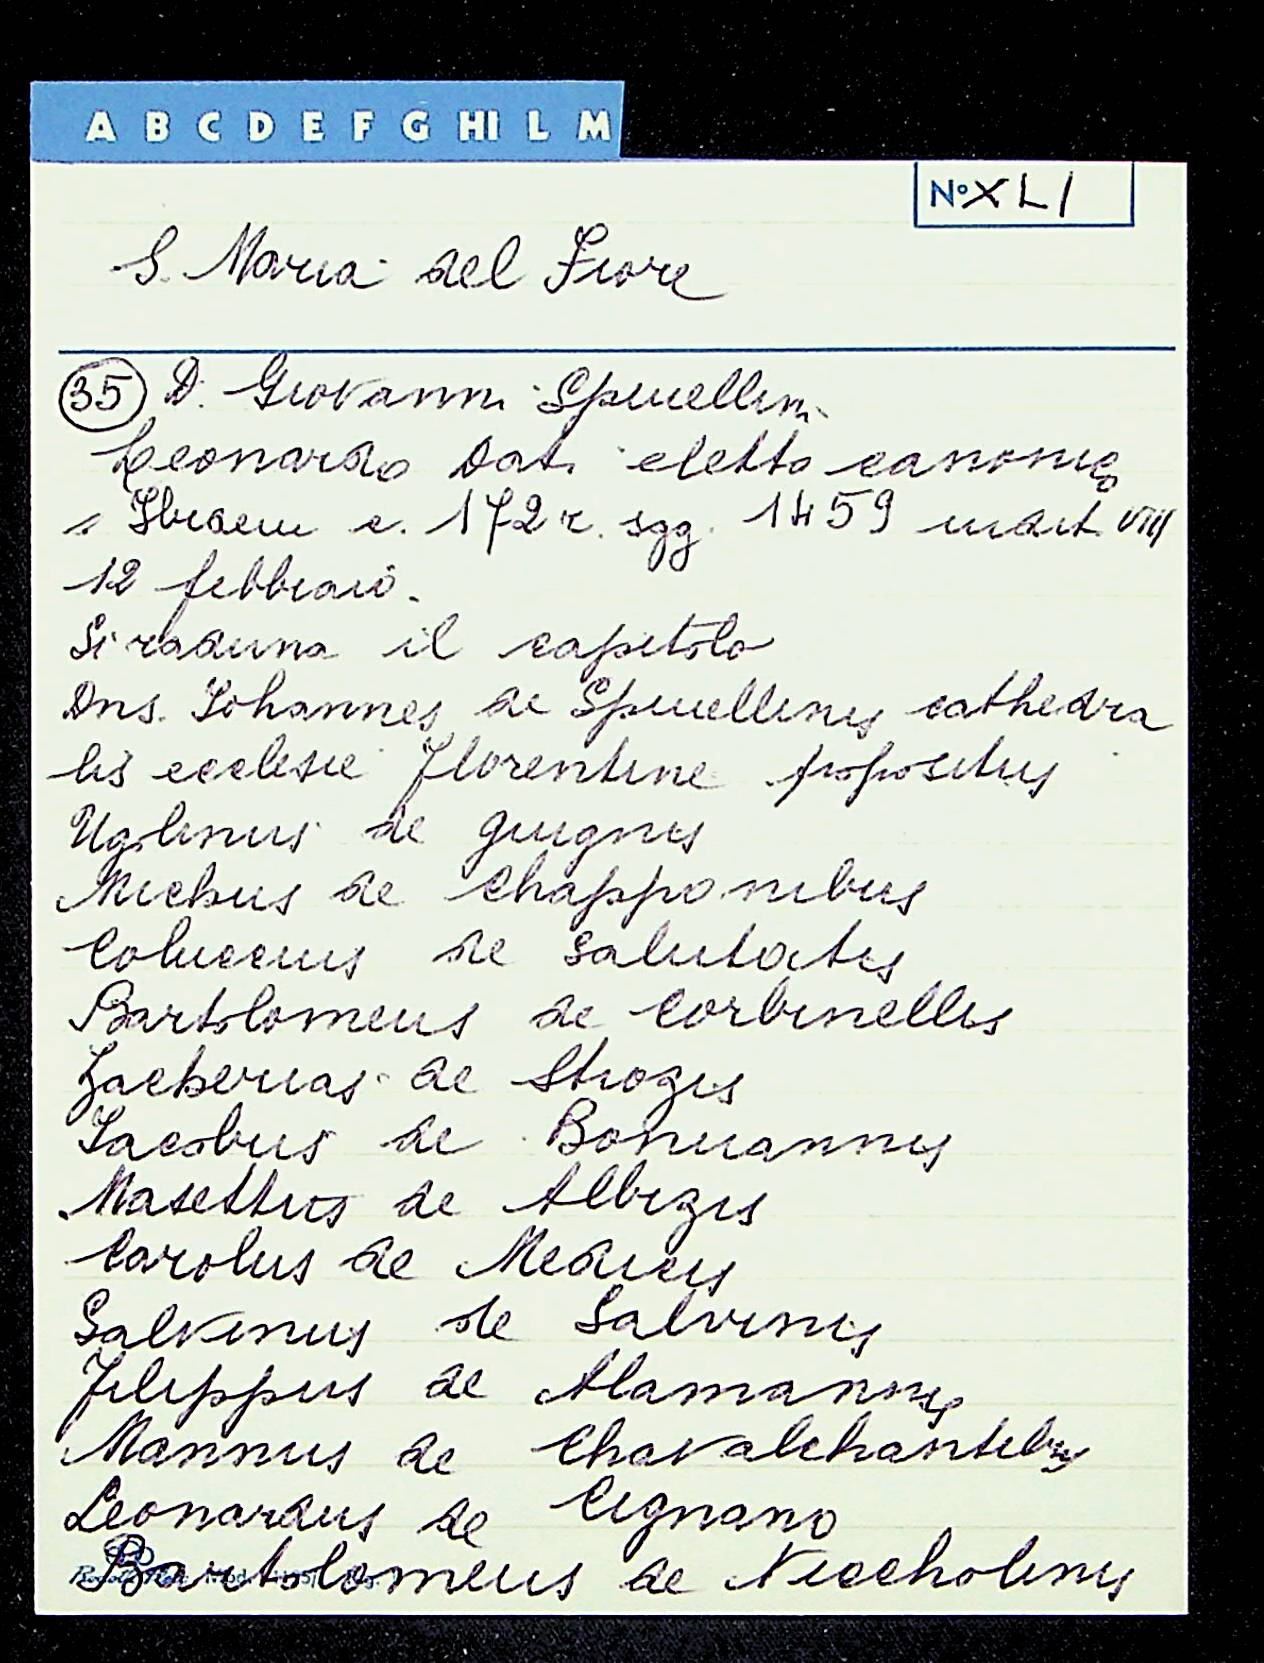 A B C D E F G HI L M
N° XLI
S. Maria del Fiore
35 D. Giovanni Spinellini
Leonardo Dati eletto canonico
Ibidem c. 172 r. sgg. 1459 indict. VIII
12 febbraio.
Si raduna il capitolo
Dns. Iohannes de Spinellinis cathedra
lis ecclesie Florentine propositus
Ugolinus de giugnis
Michus de Chapponibus
Coluccius de Salutatis
Bartolomeus de Corbinellis
Zacherias de Strozis
Iacobus de Bonuannis
Masettus de Albizis
Carolus de Medicis
Salvinus de Salvinis
Filippus de Alamannis
Mannus de Chavalchantibus
Leonardus de Cignano
Bartolomeus de Niccholinis